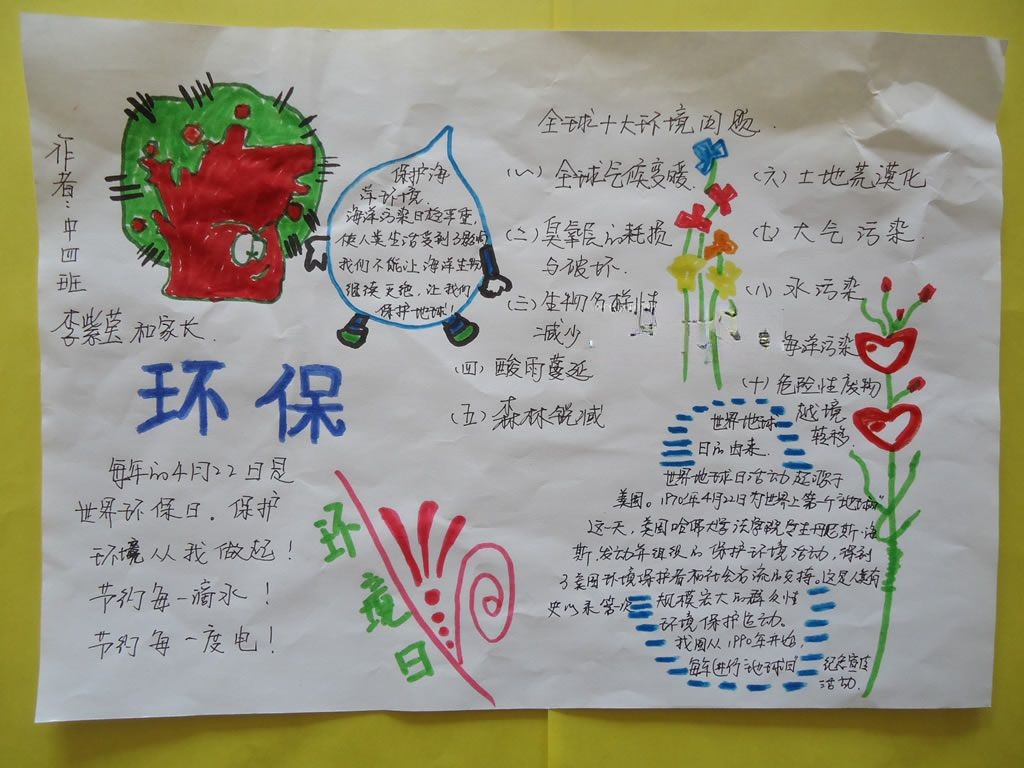 作者:中四班
李紫莹和家长.
环保
每年的4月22日是
世界环保日.保护
环境从我做起!
节约每一滴水!
节约每一度电!
保护海
洋环境.
海洋污染日趋严重
使人类生活受到了影响
我们不能让海洋生物
继续灭绝,让我们
保护地球!
环境日
全球十大环境问题.
(一)全球气候变暖.
(二)臭氧层的耗损
与破坏.
(三)生物多样性
减少
(四)酸雨蔓延
(五)森林锐减
(六)土地荒漠化
(七)大气污染.
(八)水污染
海洋污染
(十)危险性废物
越境
转移.
世界地球
日的由来.
世界地球日活动起源于
美国。1970年4月22日为世界上第一个"地球日"
这一天,美国哈佛大学法学院学生丹尼斯·海
斯,发动并组织的保护环境活动,得到
了美国环境保护者和社会名流的支持.这是人类有
史以来第一次规模宏大的群众性
环境保护运动.
我国从1990年开始,
每年进行地球日纪念宣传
活动.